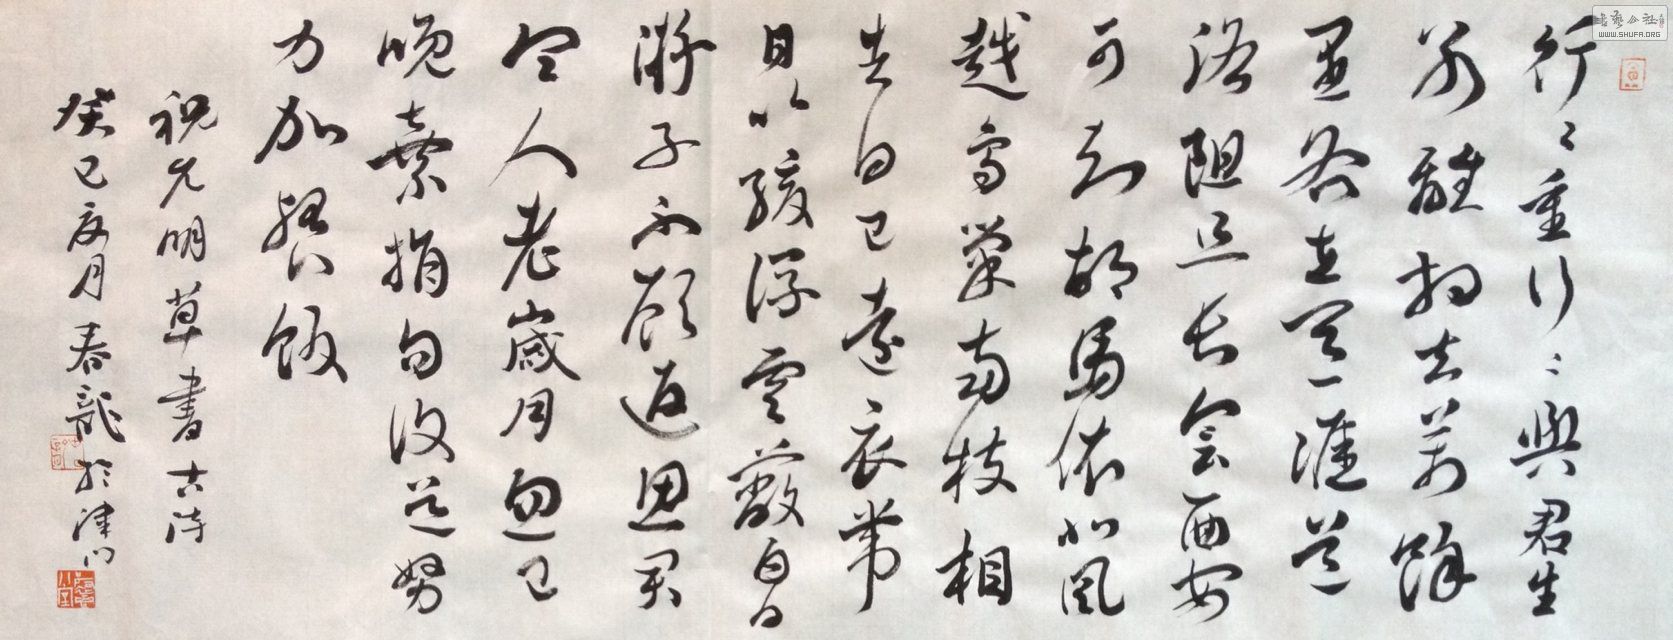 行〻重行〻與君生
别離相去萬餘
里各在天一涯道
路阻且长会面安
可知胡馬依北風
越鳥巢南枝相
去日已遠衣带
日以緩浮雲蔽白日
游子不顧返思君
令人老歲月忽已
晚棄捐勿復道努
力加餐飯
祝允明草書古诗
癸巳夏月春龍於津门
書藝公社
WWW.SHUFA.ORG